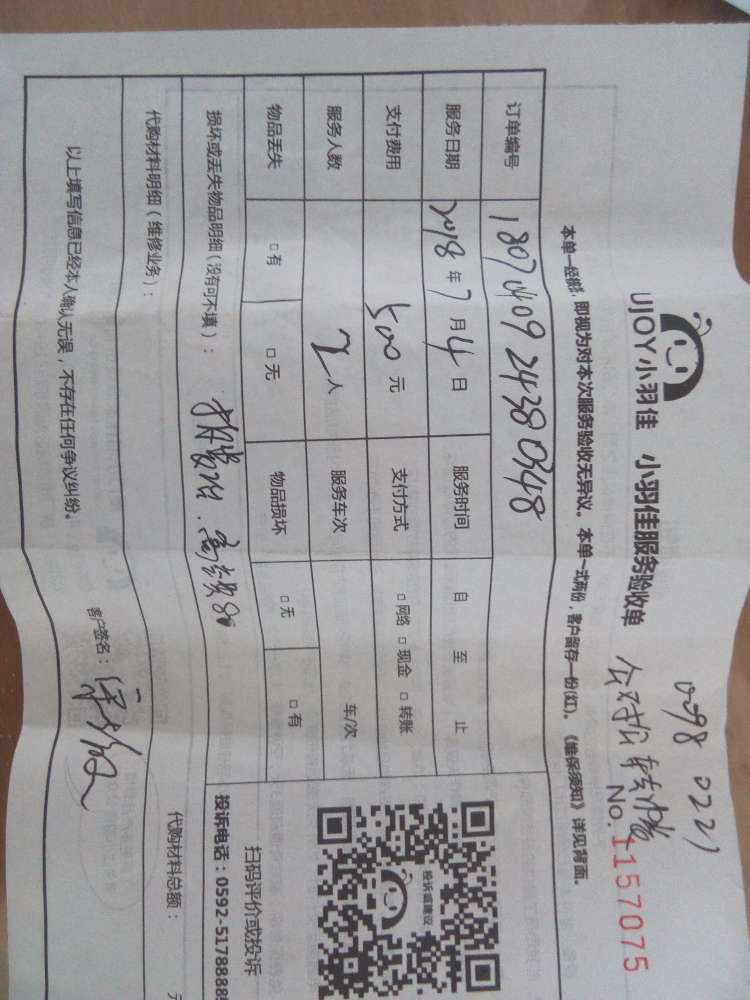 UJOY小羽佳 小羽佳服务验收单
0298 0221
No.1157075
本单一经签, 即视为对本次服务验收无异议。本单一式两份，客户留存一份(红)。《维保须知》详见背面。
订单编号 180704092438 0348
服务日期 2018年7月4日 服务时间 自 至 止
支付费用 500元 支付方式 □网络 □现金 □转账
服务人数 2人 服务车次 车/次
物品丢失 □有 □无 物品损坏 □无 □有
损坏或丢失物品明细（没有可不填）：
代购材料明细（维修业务）：
代购材料总额：
以上填写信息已经本人确认无误，不存在任何争议纠纷。
客户签名：
投诉或建议
扫码评价或投诉
投诉电话：0592-5178888